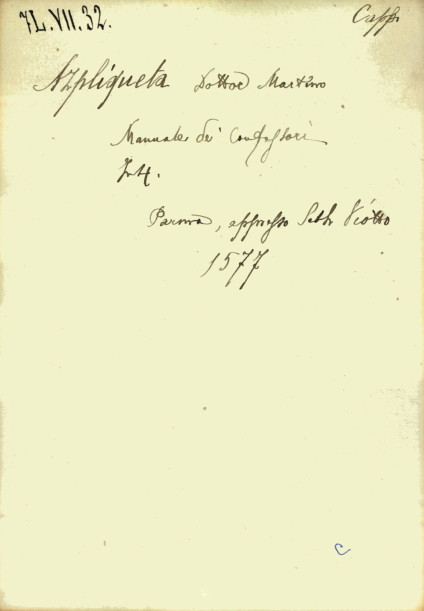 7L.VII.32.
Capp
Azpliqueta Dottor Martino
Manuale de' Confessori
In 4.
Parma, appresso Seth Viotto
1577
C